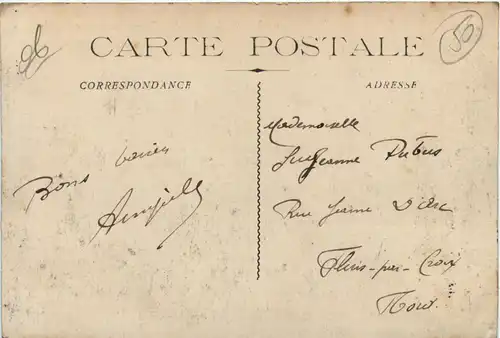 CARTE POSTALE
CORRESPONDANCE
ADRESSE
50
Bons baisers
Mademoiselle
Suzanne Dubus
Rue Jeanne D'Arc
Nord